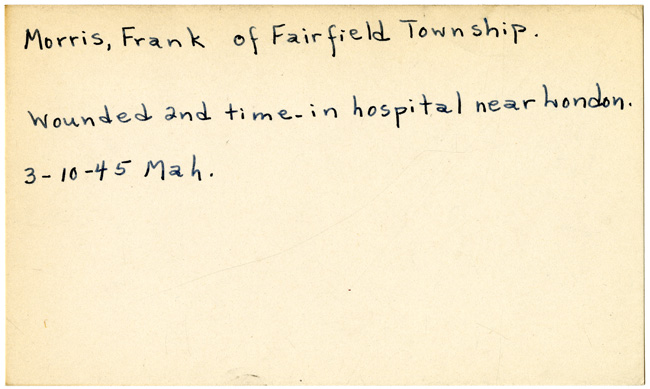 Morris, Frank of Fairfield Township.
Wounded 2nd time-in hospital near London.
3-10-45 Mah.